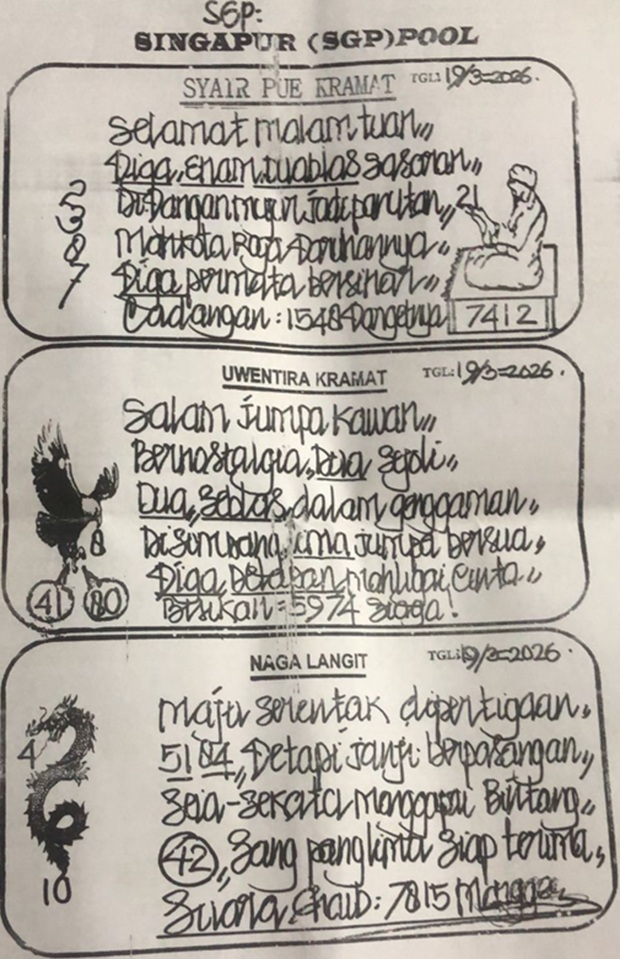 SGP:
SINGAPUR (SGP) POOL
SYAIR PUE KRAMAT TGL: 19/3=2026.
Selamat malam tuan,,
Diga, Enam, duablas sasaran,,
Di Dangan mujur jadi parutan,, 21
2
3
8
7
Mahkota Raga Daruhannya,,
Diga permata bersinar,,
Cadangan: 1548 Dangetnya 7412
UWENTIRA KRAMAT TGL: 19/3=2026.
Salam jumpa Kawan,,
Bernostalgia, Dua Sejoli,,
Dua, Seblas, dalam genggaman,,
8
Disimpang, Lima jumpa bersua,,
41 80
Diga, Delapan mahligai Cinta,,
Bisikan=5974 Siaga!
NAGA LANGIT TGL: 19/3=2026
Maju serentak dipertigaan,,
4
5184,, Detapi janji berpasangan,,
Seia-Sekata Menggapai Bintang,,
42,, Sang panglima Siap terima,,
10
Suara Ghaib: 7815 Mangga